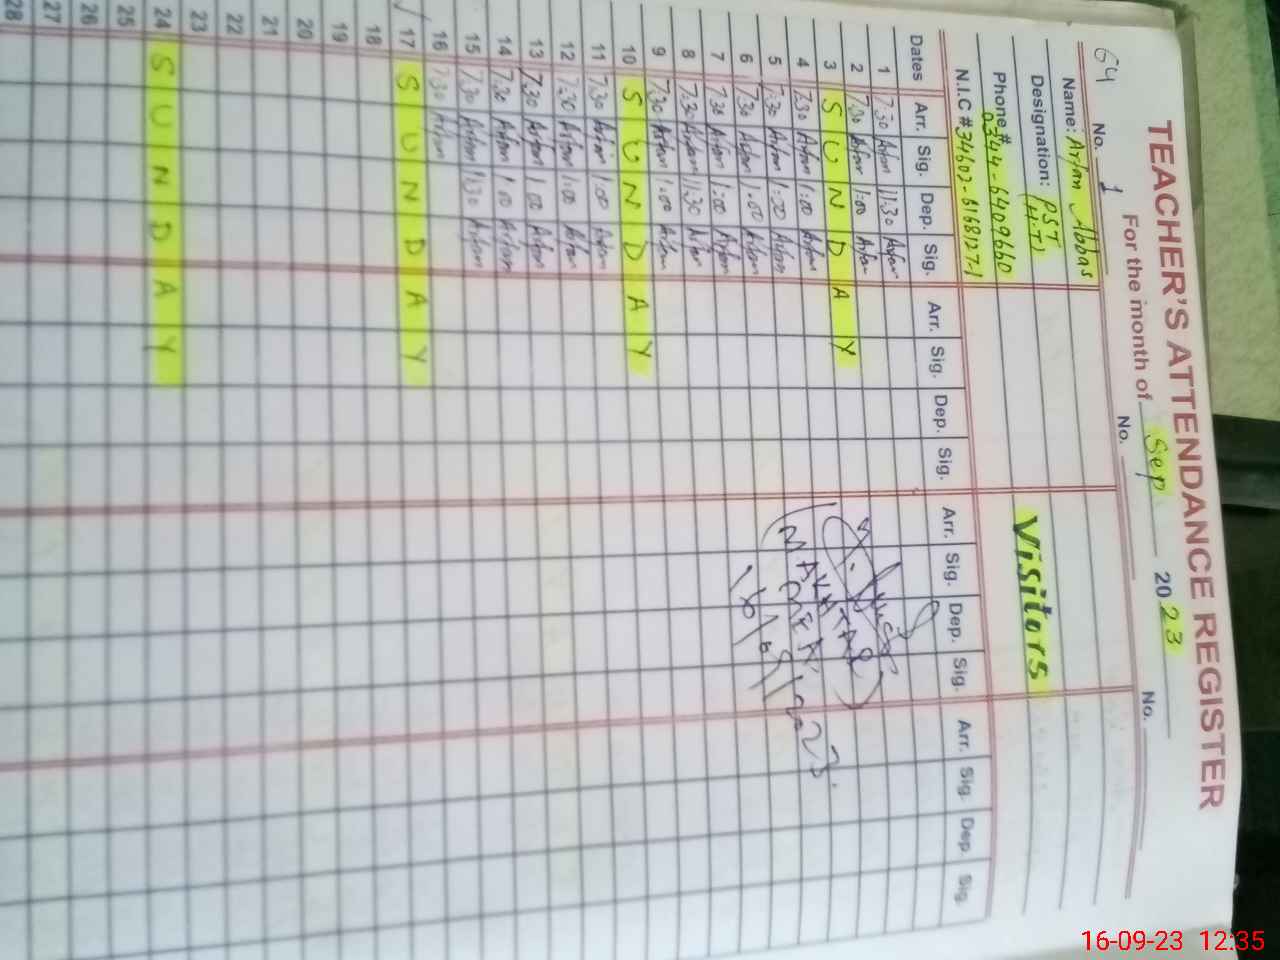 64
TEACHER'S ATTENDANCE REGISTER
For the month of Sep 2023
No. 1 No. No.
Name: Arfan Abbas
Designation: PST (H.T)
Phone # 0344-6409660 Visitors
N.I.C # 34603-6168127-1
Dates Arr. Sig. Dep. Sig. Arr. Sig. Dep. Sig. Arr. Sig. Dep. Sig. Arr. Sig. Dep. Sig.
1 7:30 Arfan 11:30 Arfan
2 7:30 Arfan 1:00 Arfan
3 SUNDAY
4 7:30 Arfan 1:00 Arfan
5 7:30 Arfan 1:00 Arfan
6 7:30 Arfan 1:00 Arfan
7 7:30 Arfan 1:00 Arfan
8 7:30 Arfan 11:30 Arfan
9 7:30 Arfan 1:00 Arfan
10 SUNDAY
11 7:30 Arfan 1:00 Arfan
12 7:30 Arfan 1:00 Arfan
13 7:30 Arfan 1:00 Arfan
14 7:30 Arfan 1:00 Arfan
15 7:30 Arfan 11:30 Arfan
16 7:30 Arfan
17 SUNDAY
18
19
20
21
22
23
24 SUNDAY
25
26
27
28
16/09/2023
16-09-23 12:35